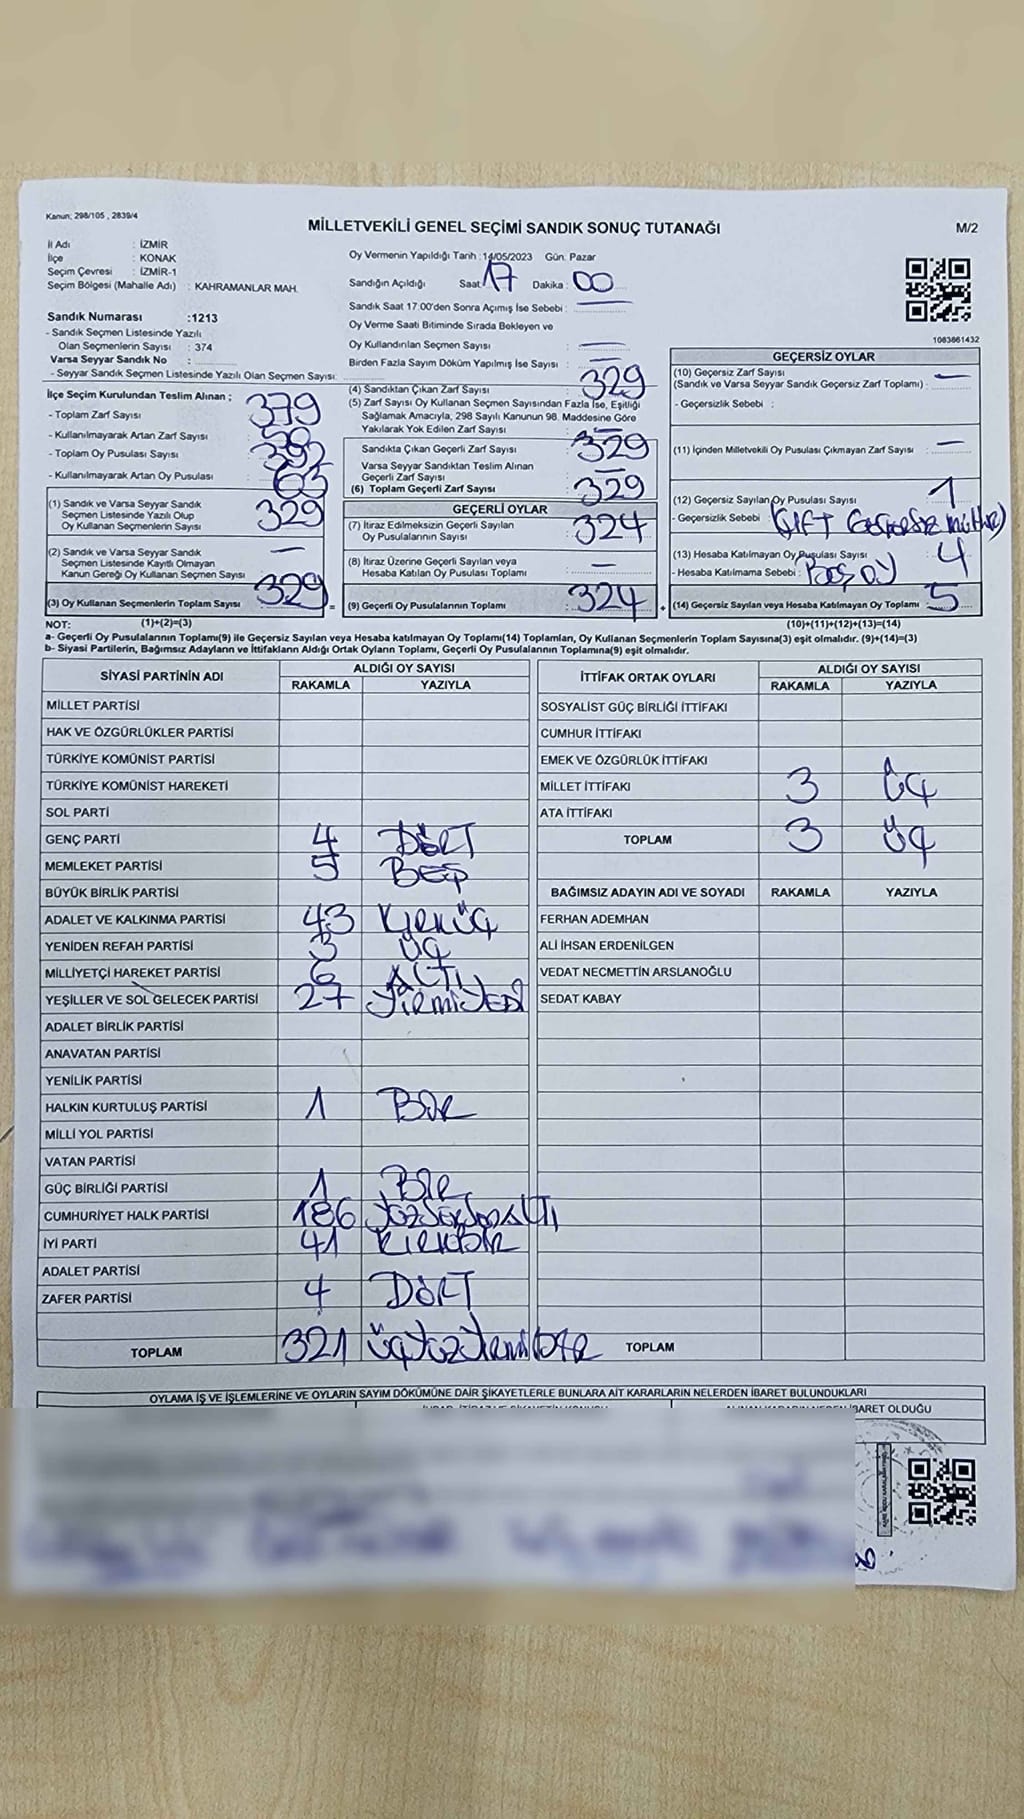 Kanun; 298/105 , 2839/4
MİLLETVEKİLİ GENEL SEÇİMİ SANDIK SONUÇ TUTANAĞI
M/2
İl Adı : İZMİR
İlçe : KONAK
Seçim Çevresi : İZMİR-1
Seçim Bölgesi (Mahalle Adı) : KAHRAMANLAR MAH.
Oy Vermenin Yapıldığı Tarih : 14/05/2023 Gün. Pazar
Sandığın Açıldığı Saat : 17 Dakika : 00
Sandık Saat 17.00'den Sonra Açımış İse Sebebi : —
Oy Verme Saati Bitiminde Sırada Bekleyen ve
Oy Kullandırılan Seçmen Sayısı : —
Birden Fazla Sayım Döküm Yapılmış İse Sayısı : —
Sandık Numarası :1213
- Sandık Seçmen Listesinde Yazılı
Olan Seçmenlerin Sayısı : 374
Varsa Seyyar Sandık No :
- Seyyar Sandık Seçmen Listesinde Yazılı Olan Seçmen Sayısı:
1083861432
İlçe Seçim Kurulundan Teslim Alınan ;
- Toplam Zarf Sayısı : 379
- Kullanılmayarak Artan Zarf Sayısı : 50
- Toplam Oy Pusulası Sayısı : 392
- Kullanılmayarak Artan Oy Pusulası : 63
(1) Sandık ve Varsa Seyyar Sandık
Seçmen Listesinde Yazılı Olup
Oy Kullanan Seçmenlerin Sayısı : 329
(2) Sandık ve Varsa Seyyar Sandık
Seçmen Listesinde Kayıtlı Olmayan
Kanun Gereği Oy Kullanan Seçmen Sayısı : —
(3) Oy Kullanan Seçmenlerin Toplam Sayısı : 329 =
(4) Sandıktan Çıkan Zarf Sayısı : 329
(5) Zarf Sayısı Oy Kullanan Seçmen Sayısından Fazla İse, Eşitliği
Sağlamak Amacıyla, 298 Sayılı Kanunun 98. Maddesine Göre
Yakılarak Yok Edilen Zarf Sayısı : —
Sandıkta Çıkan Geçerli Zarf Sayısı : 329
Varsa Seyyar Sandıktan Teslim Alınan
Geçerli Zarf Sayısı : —
(6) Toplam Geçerli Zarf Sayısı : 329
GEÇERLİ OYLAR
(7) İtiraz Edilmeksizin Geçerli Sayılan
Oy Pusulasının Sayısı : 324
(8) İtiraz Üzerine Geçerli Sayılan veya
Hesaba Katılan Oy Pusulası Toplamı : —
(9) Geçerli Oy Pusulalarının Toplamı : 324 +
GEÇERSİZ OYLAR
(10) Geçersiz Zarf Sayısı
(Sandık ve Varsa Seyyar Sandık Geçersiz Zarf Toplamı) : —
- Geçersizlik Sebebi :
(11) İçinden Milletvekili Oy Pusulası Çıkmayan Zarf Sayısı : —
(12) Geçersiz Sayılan Oy Pusulası Sayısı : 1
- Geçersizlik Sebebi : ÇİFT Geçersiz mühür)
(13) Hesaba Katılmayan Oy Pusulası Sayısı : 4
- Hesaba Katılmama Sebebi : BOŞ OY
(14) Geçersiz Sayılan veya Hesaba Katılmayan Oy Toplamı : 5
NOT: (1)+(2)=(3) (10)+(11)+(12)+(13)=(14)
a- Geçerli Oy Pusulalarının Toplamı(9) ile Geçersiz Sayılan veya Hesaba katılmayan Oy Toplamı(14) Toplamları, Oy Kullanan Seçmenlerin Toplam Sayısına(3) eşit olmalıdır. (9)+(14)=(3)
b- Siyasi Partilerin, Bağımsız Adayların ve İttifakların Aldığı Ortak Oyların Toplamı, Geçerli Oy Pusulalarının Toplamına(9) eşit olmalıdır.
SİYASİ PARTİNİN ADI ALDIĞI OY SAYISI
RAKAMLA YAZIYLA
MİLLET PARTİSİ
HAK VE ÖZGÜRLÜKLER PARTİSİ
TÜRKİYE KOMÜNİST PARTİSİ
TÜRKİYE KOMÜNİST HAREKETİ
SOL PARTİ
GENÇ PARTİ 4 DÖRT
MEMLEKET PARTİSİ 5 BEŞ
BÜYÜK BİRLİK PARTİSİ
ADALET VE KALKINMA PARTİSİ 43 KIRKÜÇ
YENİDEN REFAH PARTİSİ 3 ÜÇ
MİLLİYETÇİ HAREKET PARTİSİ 6 ALTI
YEŞİLLER VE SOL GELECEK PARTİSİ 27 YİRMİYEDİ
ADALET BİRLİK PARTİSİ
ANAVATAN PARTİSİ
YENİLİK PARTİSİ
HALKIN KURTULUŞ PARTİSİ 1 BİR
MİLLİ YOL PARTİSİ
VATAN PARTİSİ
GÜÇ BİRLİĞİ PARTİSİ 1 BİR
CUMHURİYET HALK PARTİSİ 186 YÜZSEKSENALTI
İYİ PARTİ 41 KIRKBİR
ADALET PARTİSİ
ZAFER PARTİSİ 4 DÖRT
TOPLAM 321 ÜÇYÜZYİRMİBİR
İTTİFAK ORTAK OYLARI ALDIĞI OY SAYISI
RAKAMLA YAZIYLA
SOSYALİST GÜÇ BİRLİĞİ İTTİFAKI
CUMHUR İTTİFAKI
EMEK VE ÖZGÜRLÜK İTTİFAKI
MİLLET İTTİFAKI 3 ÜÇ
ATA İTTİFAKI
TOPLAM 3 ÜÇ
BAĞIMSIZ ADAYIN ADI VE SOYADI RAKAMLA YAZIYLA
FERHAN ADEMHAN
ALİ İHSAN ERDENİLGEN
VEDAT NECMETTİN ARSLANOĞLU
SEDAT KABAY
TOPLAM
OYLAMA İŞ VE İŞLEMLERİNE VE OYLARIN SAYIM DÖKÜMÜNE DAİR ŞİKAYETLERLE BUNLARA AİT KARARLARIN NELERDEN İBARET BULUNDUKLARI
İBARET OLDUĞU